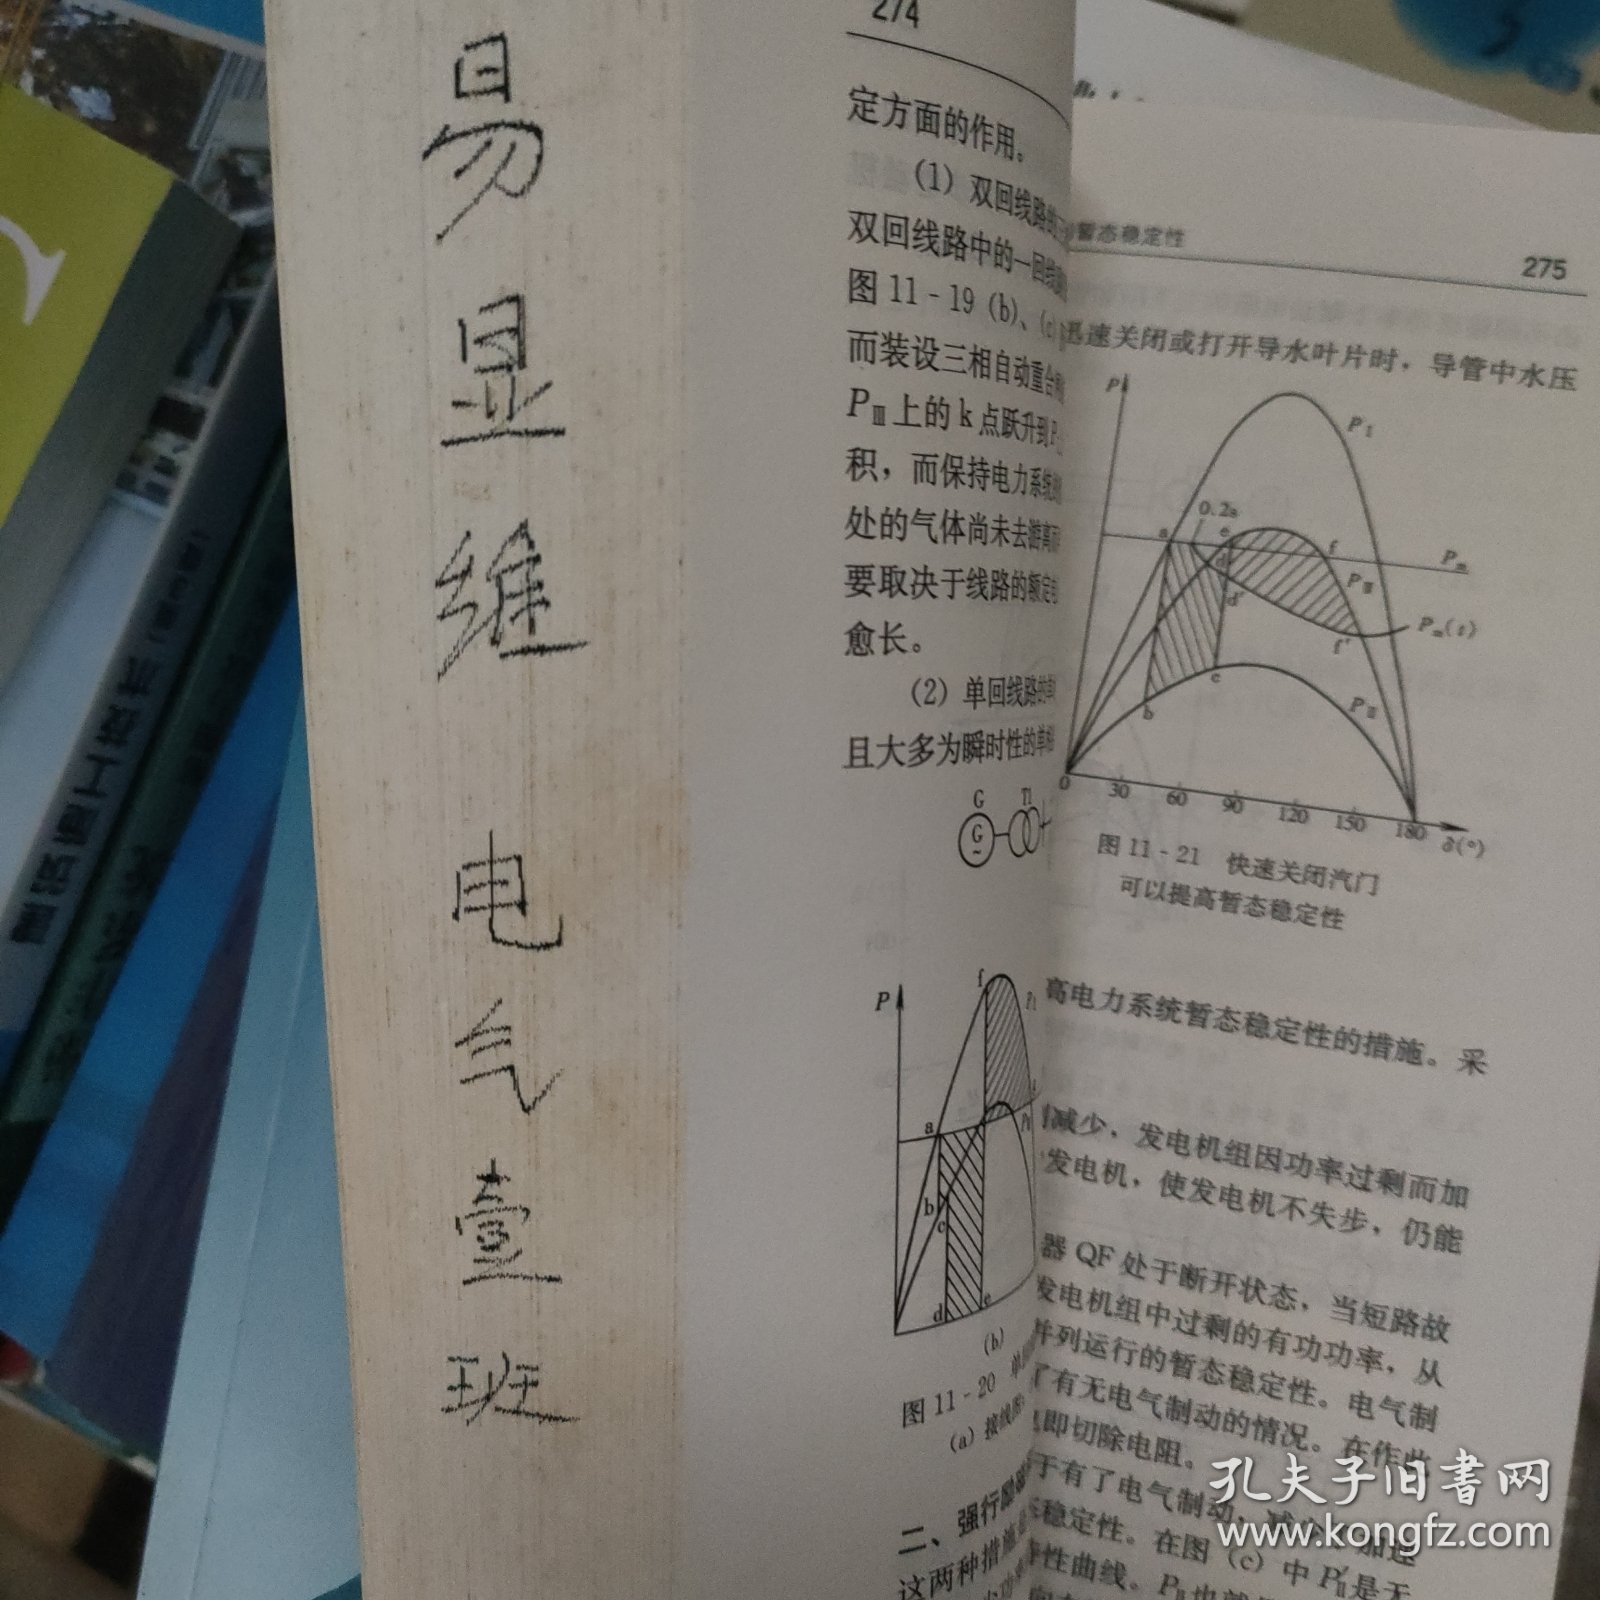 易显维 电气壹班
274
定方面的作用。
(1) 双回线路的
双回线路中的一回线
图 11 - 19 (b)、(c)
而装设三相自动重合
PⅢ 上的 k 点跃升到 P
积，而保持电力系统
处的气体尚未去游离
要取决于线路的额定
愈长。
(2) 单回线路的
且大多为瞬时性的单相
G
T1
G
~
P
f
P
a
b
c
d
e
(b)
图 11 - 20 单
(a) 接线图
二、强行励磁
这两种措施
暂态稳定性
275
迅速关闭或打开导水叶片时，导管中水压
P
PⅠ
0.2s
a
e
f
Pm
d
PⅢ
d'
Pm(t)
f'
c
PⅡ
b
0 30 60 90 120 150 180 δ(°)
图 11 - 21 快速关闭汽门
可以提高暂态稳定性
高电力系统暂态稳定性的措施。采
减少，发电机组因功率过剩而加
发电机，使发电机不失步，仍能
器 QF 处于断开状态，当短路故
发电机组中过剩的有功功率，从
并列运行的暂态稳定性。电气制
了有无电气制动的情况。在作此
即切除电阻。
于有了电气制动，减少了加速
稳定性。在图 (c) 中 P'Ⅱ是无
特性曲线。PⅡ也
孔夫子旧书网
www.kongfz.com